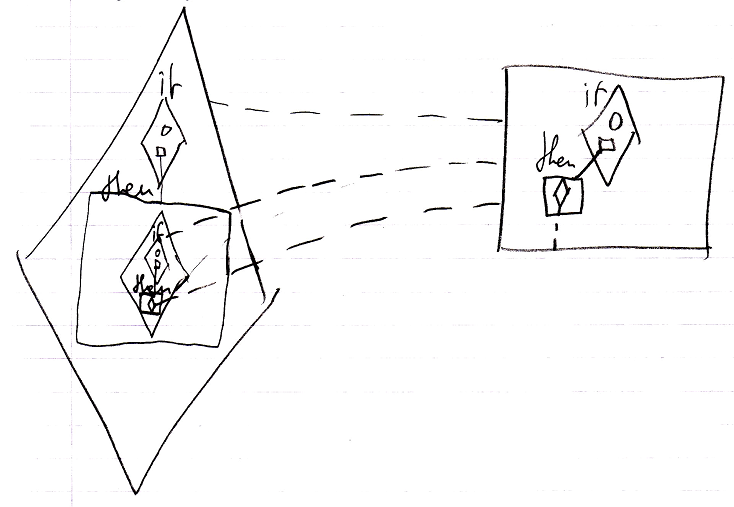 if
then
if
then
if
then